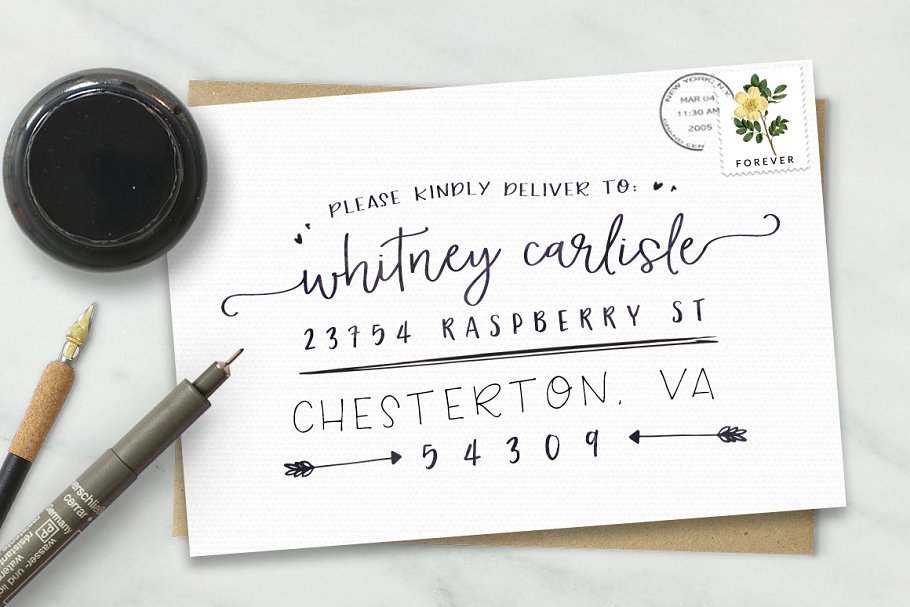 NEW YORK, N.Y.
MAR 04
11:30 AM
2005
GRAND CEN
FOREVER
PLEASE KINDLY DELIVER TO:
whitney carlisle
23754 RASPBERRY ST
CHESTERTON, VA
54309
erschließ
cerrar
Germany
PP
wasser- und